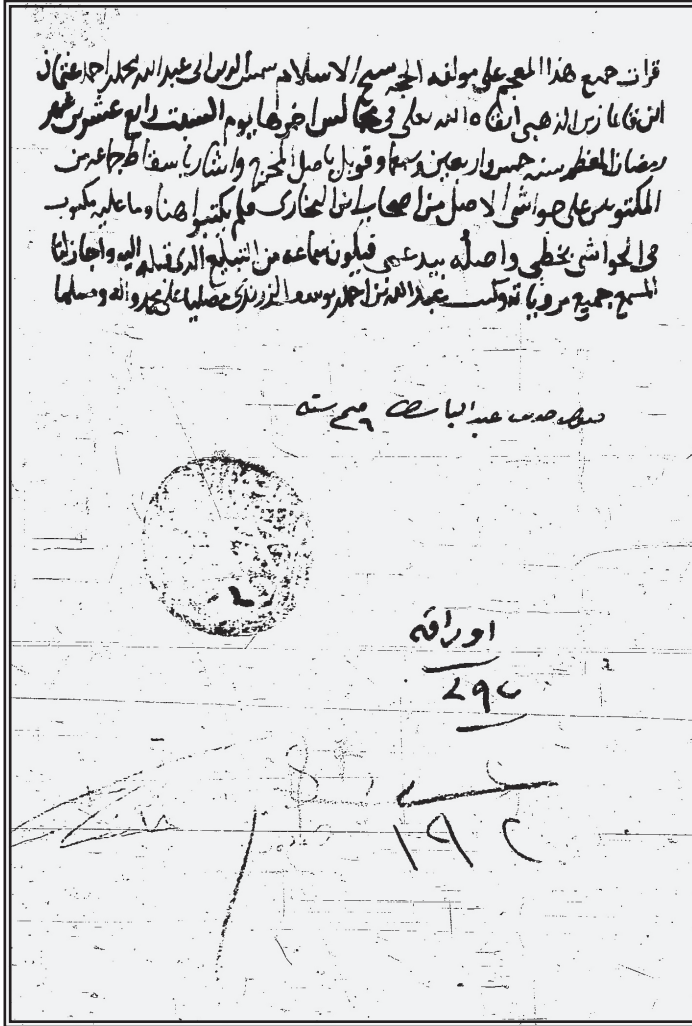 قرات جميع هذا المعجم على مولفه الحجه شيخ الاسلام شمس الدين ابى عبد الله محمد بن احمد بن عثمان
ابن قايماز بن الذهبي ابقاه الله تعلى فى مجالس اخرها يوم السبت رابع عشرين شهر
رمضان المعظم سنه خمس واربعين وسبعمايه وقوبل باصل المخرج واشار باسقاط جماعه من
المكتوبين على حواشى الاصل من اصحاب ابن البخارى فلم يكتبوا هنا وما عليه مكتوب
فى الحواشى بخطى واصله بيد عمى فيكون سماعه من التبليغ الذى قبله اليه واجاز لنا
المسمع جميع مروياته وكتب عبد الله بن احمد بن يوسف الزرندى مصليا على محمد واله ومسلما
عبد الباسط
اوراقه